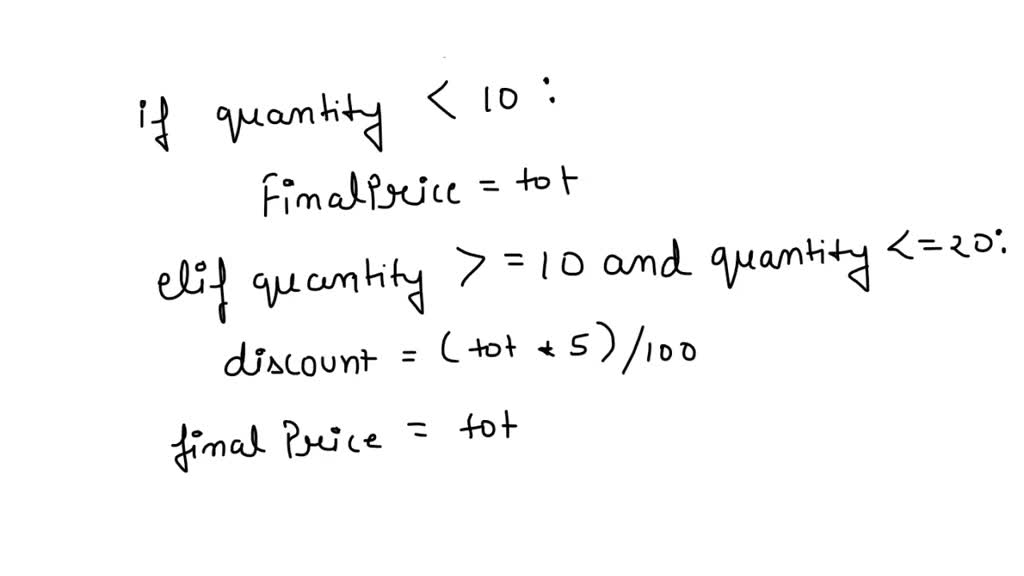 if quantity < 10 :
FinalPrice = tot
elif quantity > = 10 and quantity <= 20:
discount = ( tot * 5 ) / 100
final Price = tot